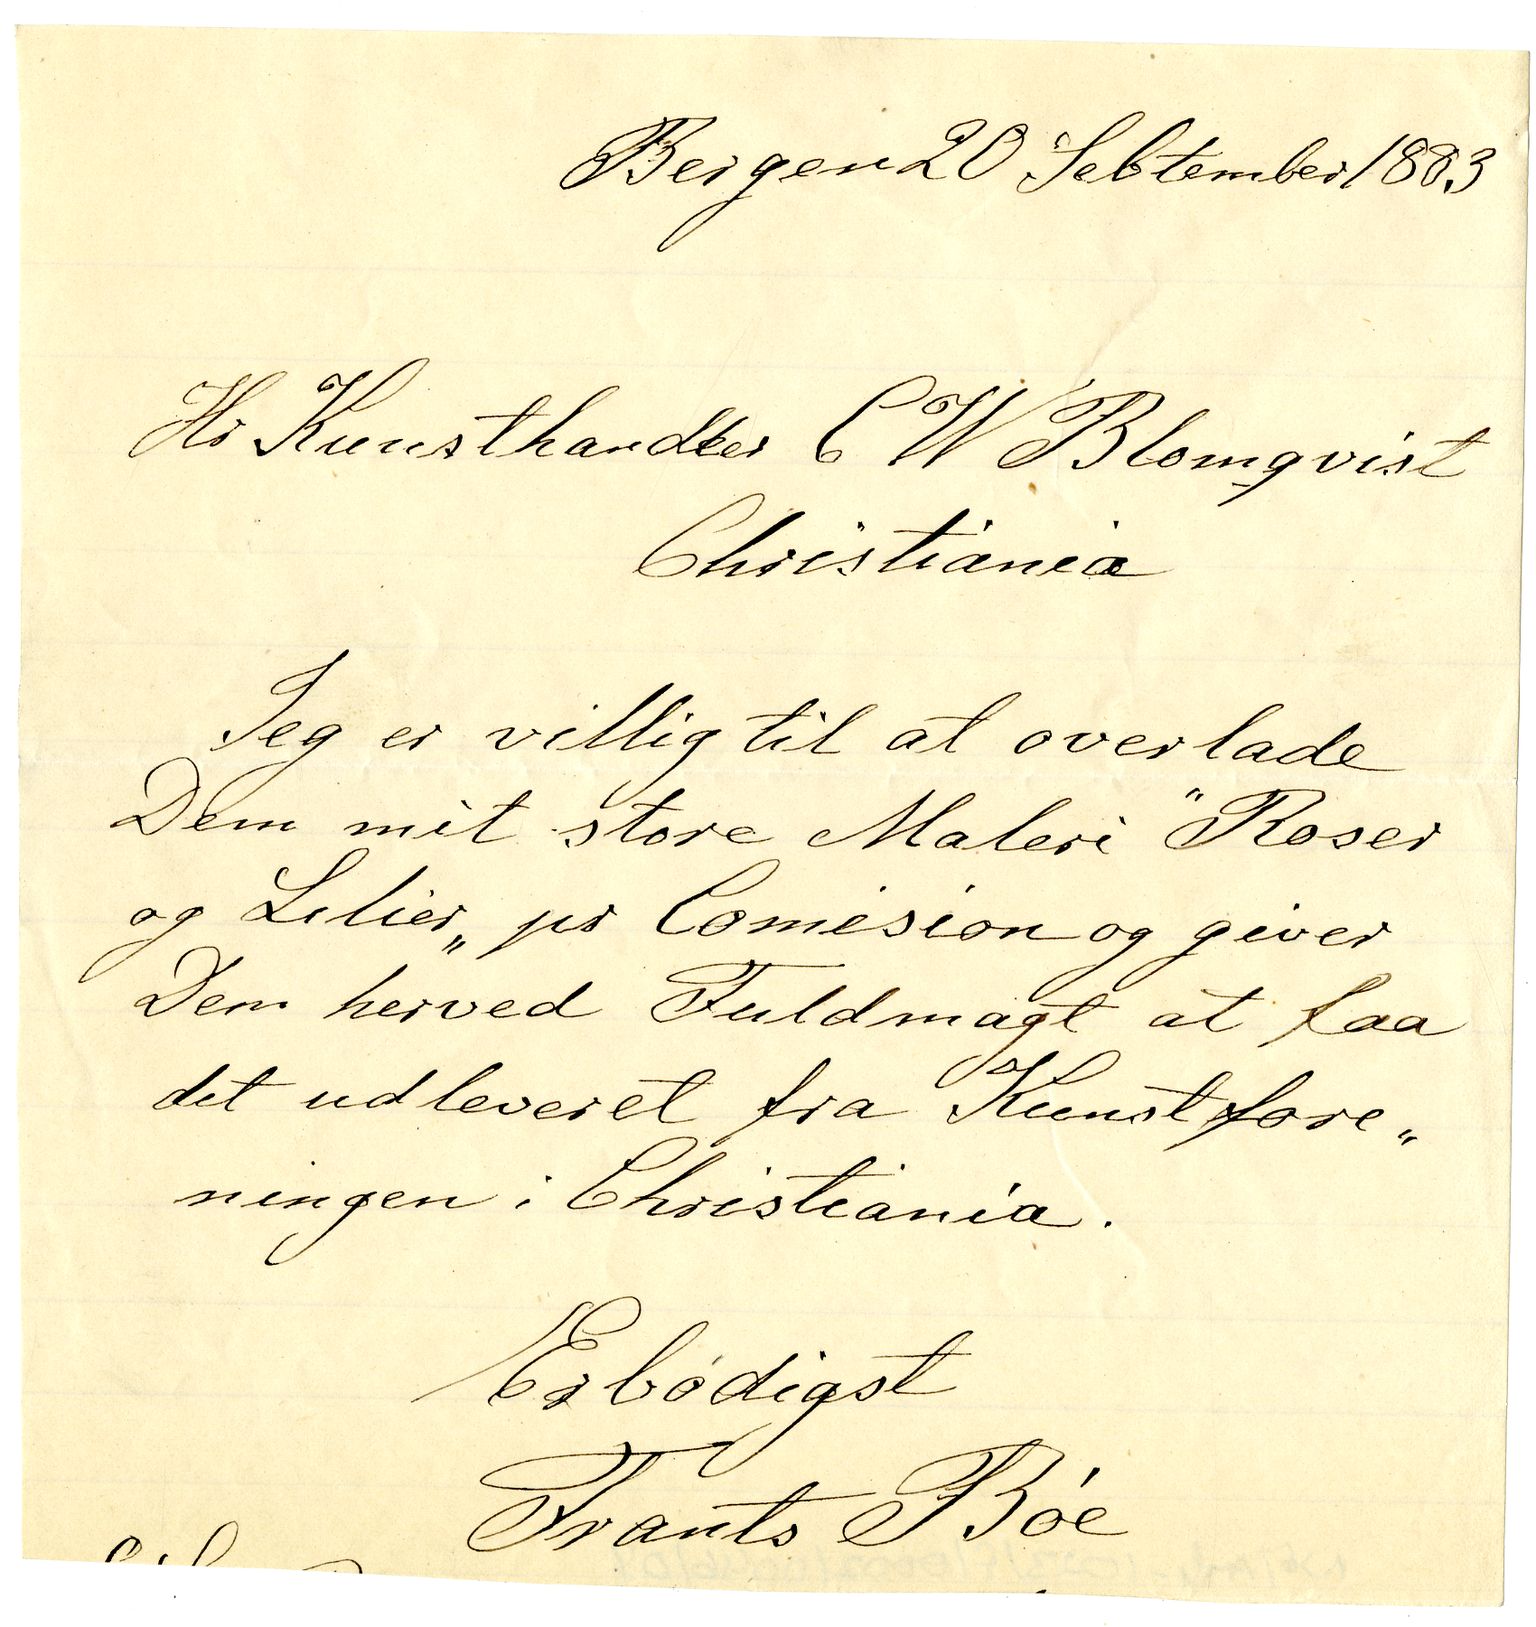 Bergen 20 September 1883
Hr Kunsthandler C W Blomqvist
Christiania
Jeg er villig til at overlade
Dem mit store Maleri "Roser
og Lilier„ pr Comision og giver
Dem herved Fuldmagt at faa
det udleveret fra Kunstfore„
ningen i Christiania.
Erbödigst
Frants Bóe